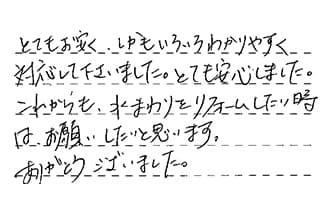 とてもお安く、しかもいろいろわかりやすく
対応して下さいました。とても安心しました。
これからも、水まわりをリフォームしたい時
は、お願いしたいと思います。
ありがとうございました。